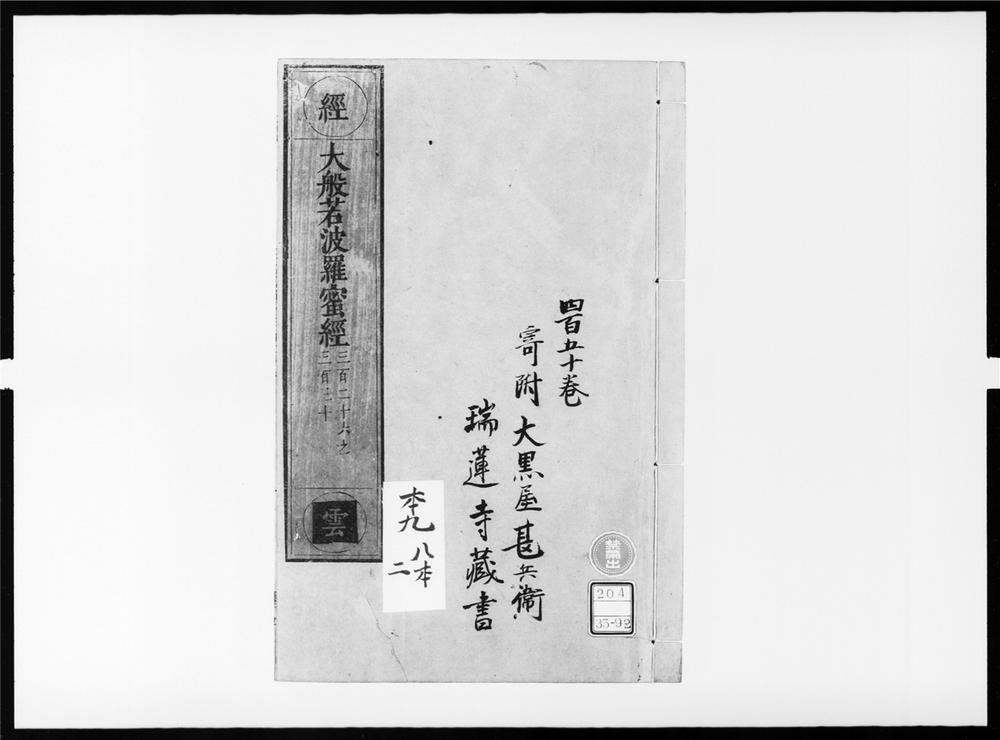 四百五十巻
寄附大黒屋甚兵衛
瑞蓮寺藏書
經
大般若波羅蜜經
三百二十六之
三百三十
雲
本九
八本
二
禁出
204
35-92